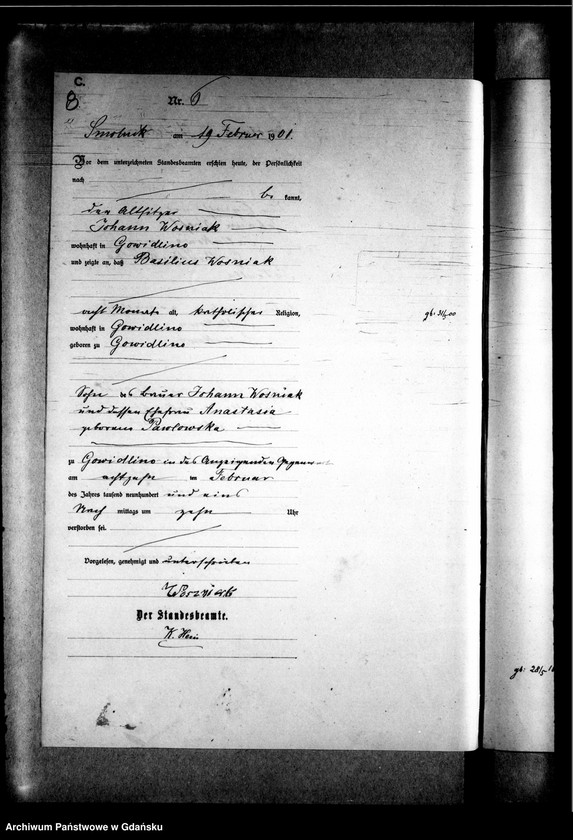 C.
8.
Nr. 6
am 19 Februar 1901.
Vor dem unterzeichneten Standesbeamten erschien heute, der Persönlichkeit
nach
be kannt,
der Altsitzer
Johann Wosniak
wohnhaft in Gowidlino
und zeigte an, daß Basilius Wosniak
acht Monate alt, katholischer Religion,
wohnhaft in Gowidlino
geb. 31/5.00
geboren zu Gowidlino
Sohn des Bauer Johann Wosniak
und dessen Ehefrau Anastasia
geborene Pawlowska
zu Gowidlino in des Anzeigenden Gegenwart
am achtzehn ten Februar
des Jahres tausend neunhundert und eins
Nach mittags um zehn Uhr
verstorben sei.
Vorgelesen, genehmigt und unterschrieben
Der Standesbeamte.
Archiwum Państwowe w Gdańsku